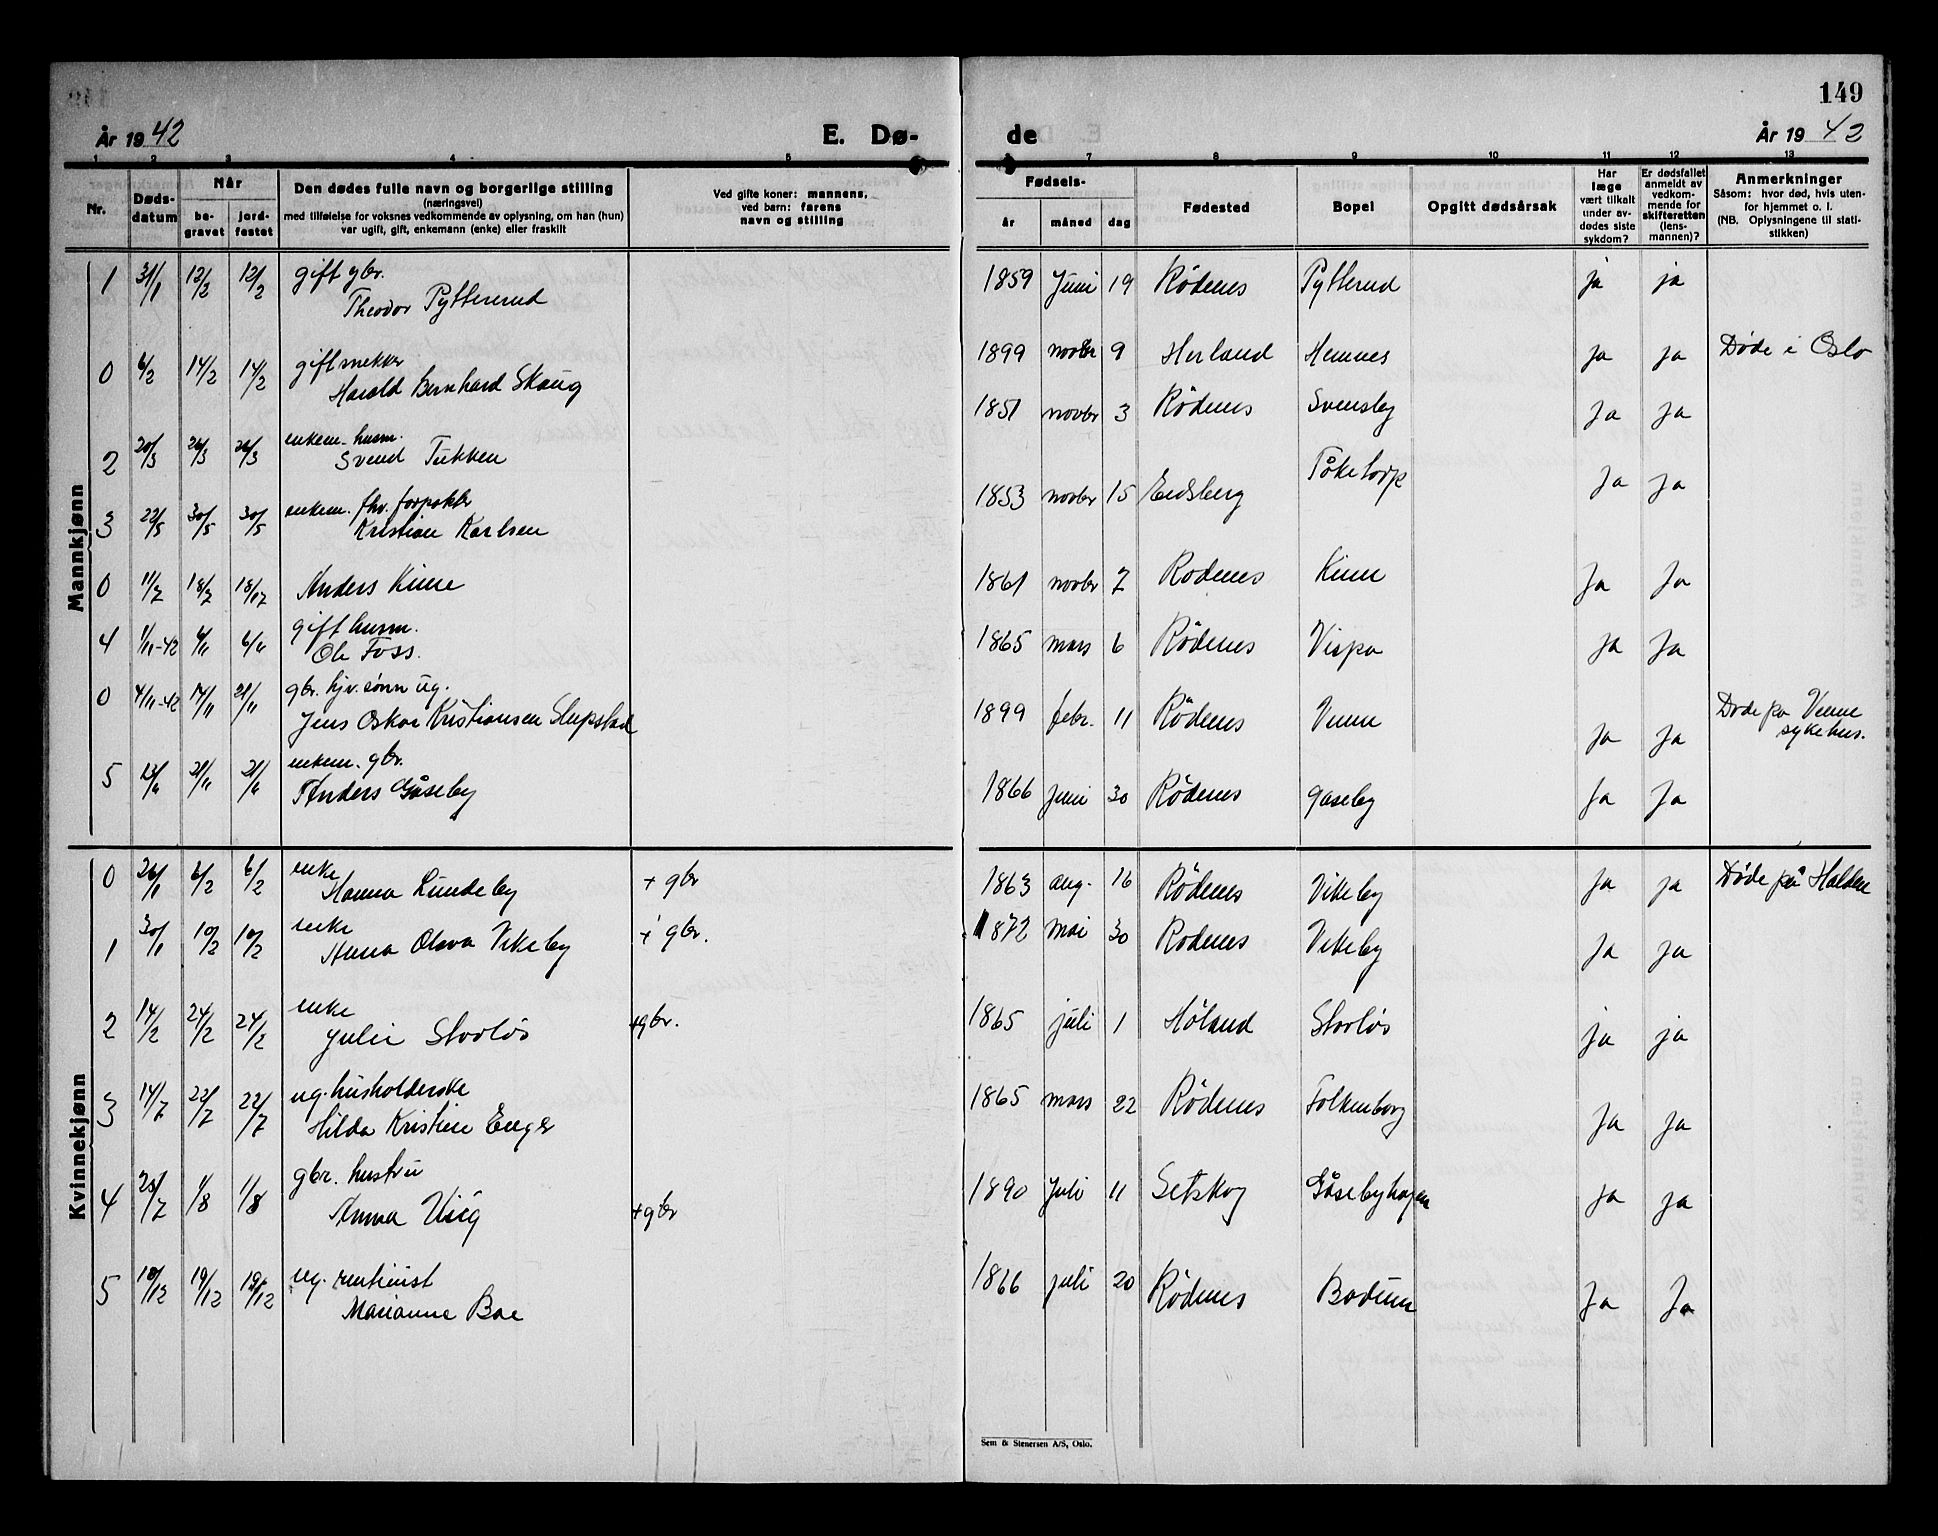 149
År 1942
E. Dø-
de
År 1942
1 2 3 4 5 6 7 8 9 10 11 12 13
Nr.
Døds-
datum
Når
be-
gravet
jord-
festet
Den dødes fulle navn og borgerlige stilling
(næringsvei)
med tilføielse for voksnes vedkommende av oplysning, om han (hun)
var ugift, gift, enkemann (enke) eller fraskilt
Ved gifte koner: mannens,
ved barn: farens
navn og stilling
Fødsels-
år måned dag
Fødested
Bopel
Opgitt dødsårsak
Har
læge
vært tilkalt
under av-
dødes siste
sykdom?
Er dødsfallet
anmeldt av
vedkom-
mende for
skifteretten
(lens-
mannen)?
Anmerkninger
Såsom: hvor død, hvis uten-
for hjemmet o. l.
(NB. Oplysningene til stati-
stikken)
Mannkjønn
1 31/1 12/2 12/2 gift gbr.
Theodor Pytterud 1859 Juni 19 Rødenes Pytterud ja ja
0 6/2 14/2 14/2 gift mekker
Harald Bernhard Skaug 1899 novbr 9 Herland Hemnes ja ja Døde i Oslo
2 20/3 26/3 26/3 enkem. husm.
Svend Tukken 1851 novbr 3 Rødenes Svensby Ja Ja
3 22/5 30/5 30/5 enkem. fhv. forpakter
Kristian Karlsen 1853 novbr 15 Eidsberg Tåketorp Ja Ja
0 11/7 18/7 18/7 Anders Kine 1861 novbr 7 Rodenes Kine Ja Ja
4 1/11-42 6/11 6/11 gift husm.
Ole Foss. 1865 mars 6 Rödenes Vispa Ja Ja
0 4/11-42 14/11 21/11 gbr. hjv. sønn ug.
Jens Oskar Kristiansen Slupstad 1899 febr. 11 Rödenes Venne Ja Ja Døde på Venne
sykehus.
5 13/11 21/11 21/11 enkem. gbr.
Anders Gåseby 1866 juni 30 Rödenes gaseby Ja Ja
Kvinnekjønn
0 26/1 6/2 6/2 enke
Hanna Lundeby + gbr 1863 aug. 16 Rødenes Vikeby Ja ja Døde på Halden
1 30/1 10/2 10/2 enke
Anna Olava Vikeby + gbr. 1872 mai 30 Rodenes Vikeby Ja Ja
2 14/2 24/2 24/2 enke
Julie Storløs +gbr. 1865 juli 1 Høland Storløs ja ja
3 14/7 22/7 22/7 ug. husholderske
Hilda Kristine Enger 1865 mars 22 Rødenes Folkenborg Ja Ja
4 25/7 1/8 1/8 gbr. hustru
Anna Visig +gbr 1890 Juli 11 Setskog Gåsebyhagen Ja Ja
5 10/12 19/12 19/12 ug. rentenist
Marianne Boe 1866 juli 20 Rødenes Bodum Ja Ja
Sem & Stenersen A/S, Oslo.